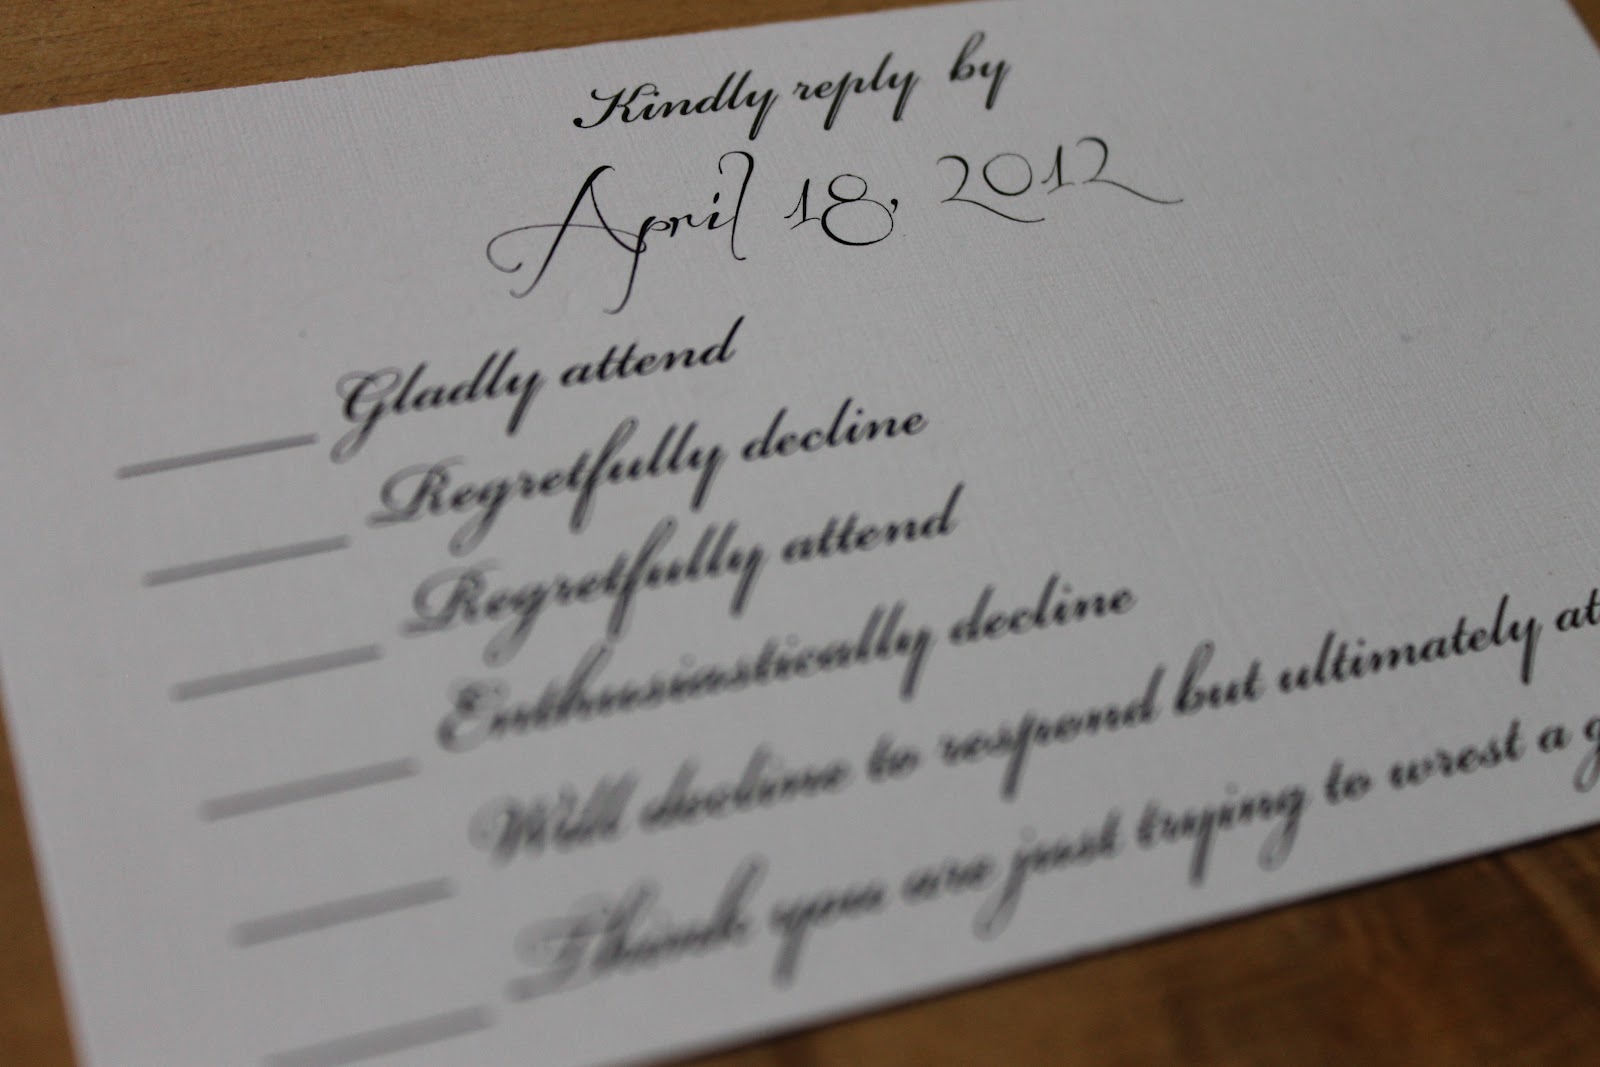 Kindly reply by
April 18, 2012
Gladly attend
Regretfully decline
Regretfully attend
Enthusiastically decline
Will decline to respond but ultimately at
Think you are just trying to wrest a g